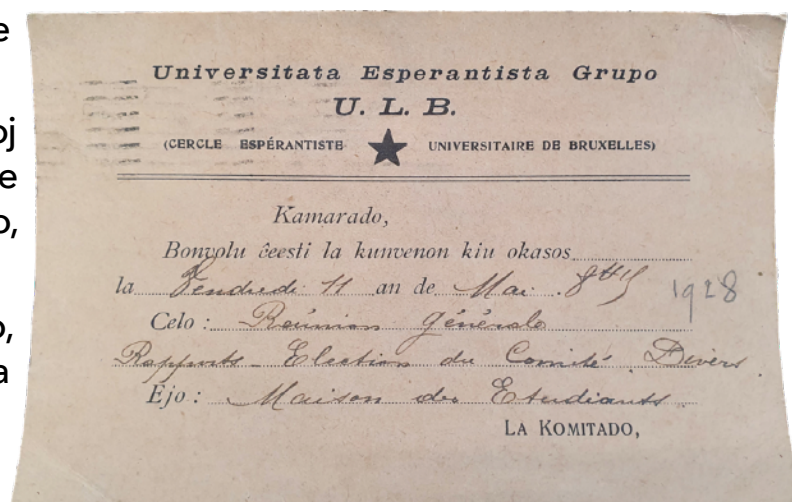 e
Universitata Esperantista Grupo
U. L. B.
oj
(CERCLE ESPÉRANTISTE ★ UNIVERSITAIRE DE BRUXELLES)
e
o,
Kamarado,
Bonvolu ĉeesti la kunvenon kiu okasos
la Vendredi 11 an de Mai. 1928
o,
Celo : Réunion générale
a
Rapports - Election du Comité. Divers.
Ejo : Maison des Etudiants
LA KOMITADO,